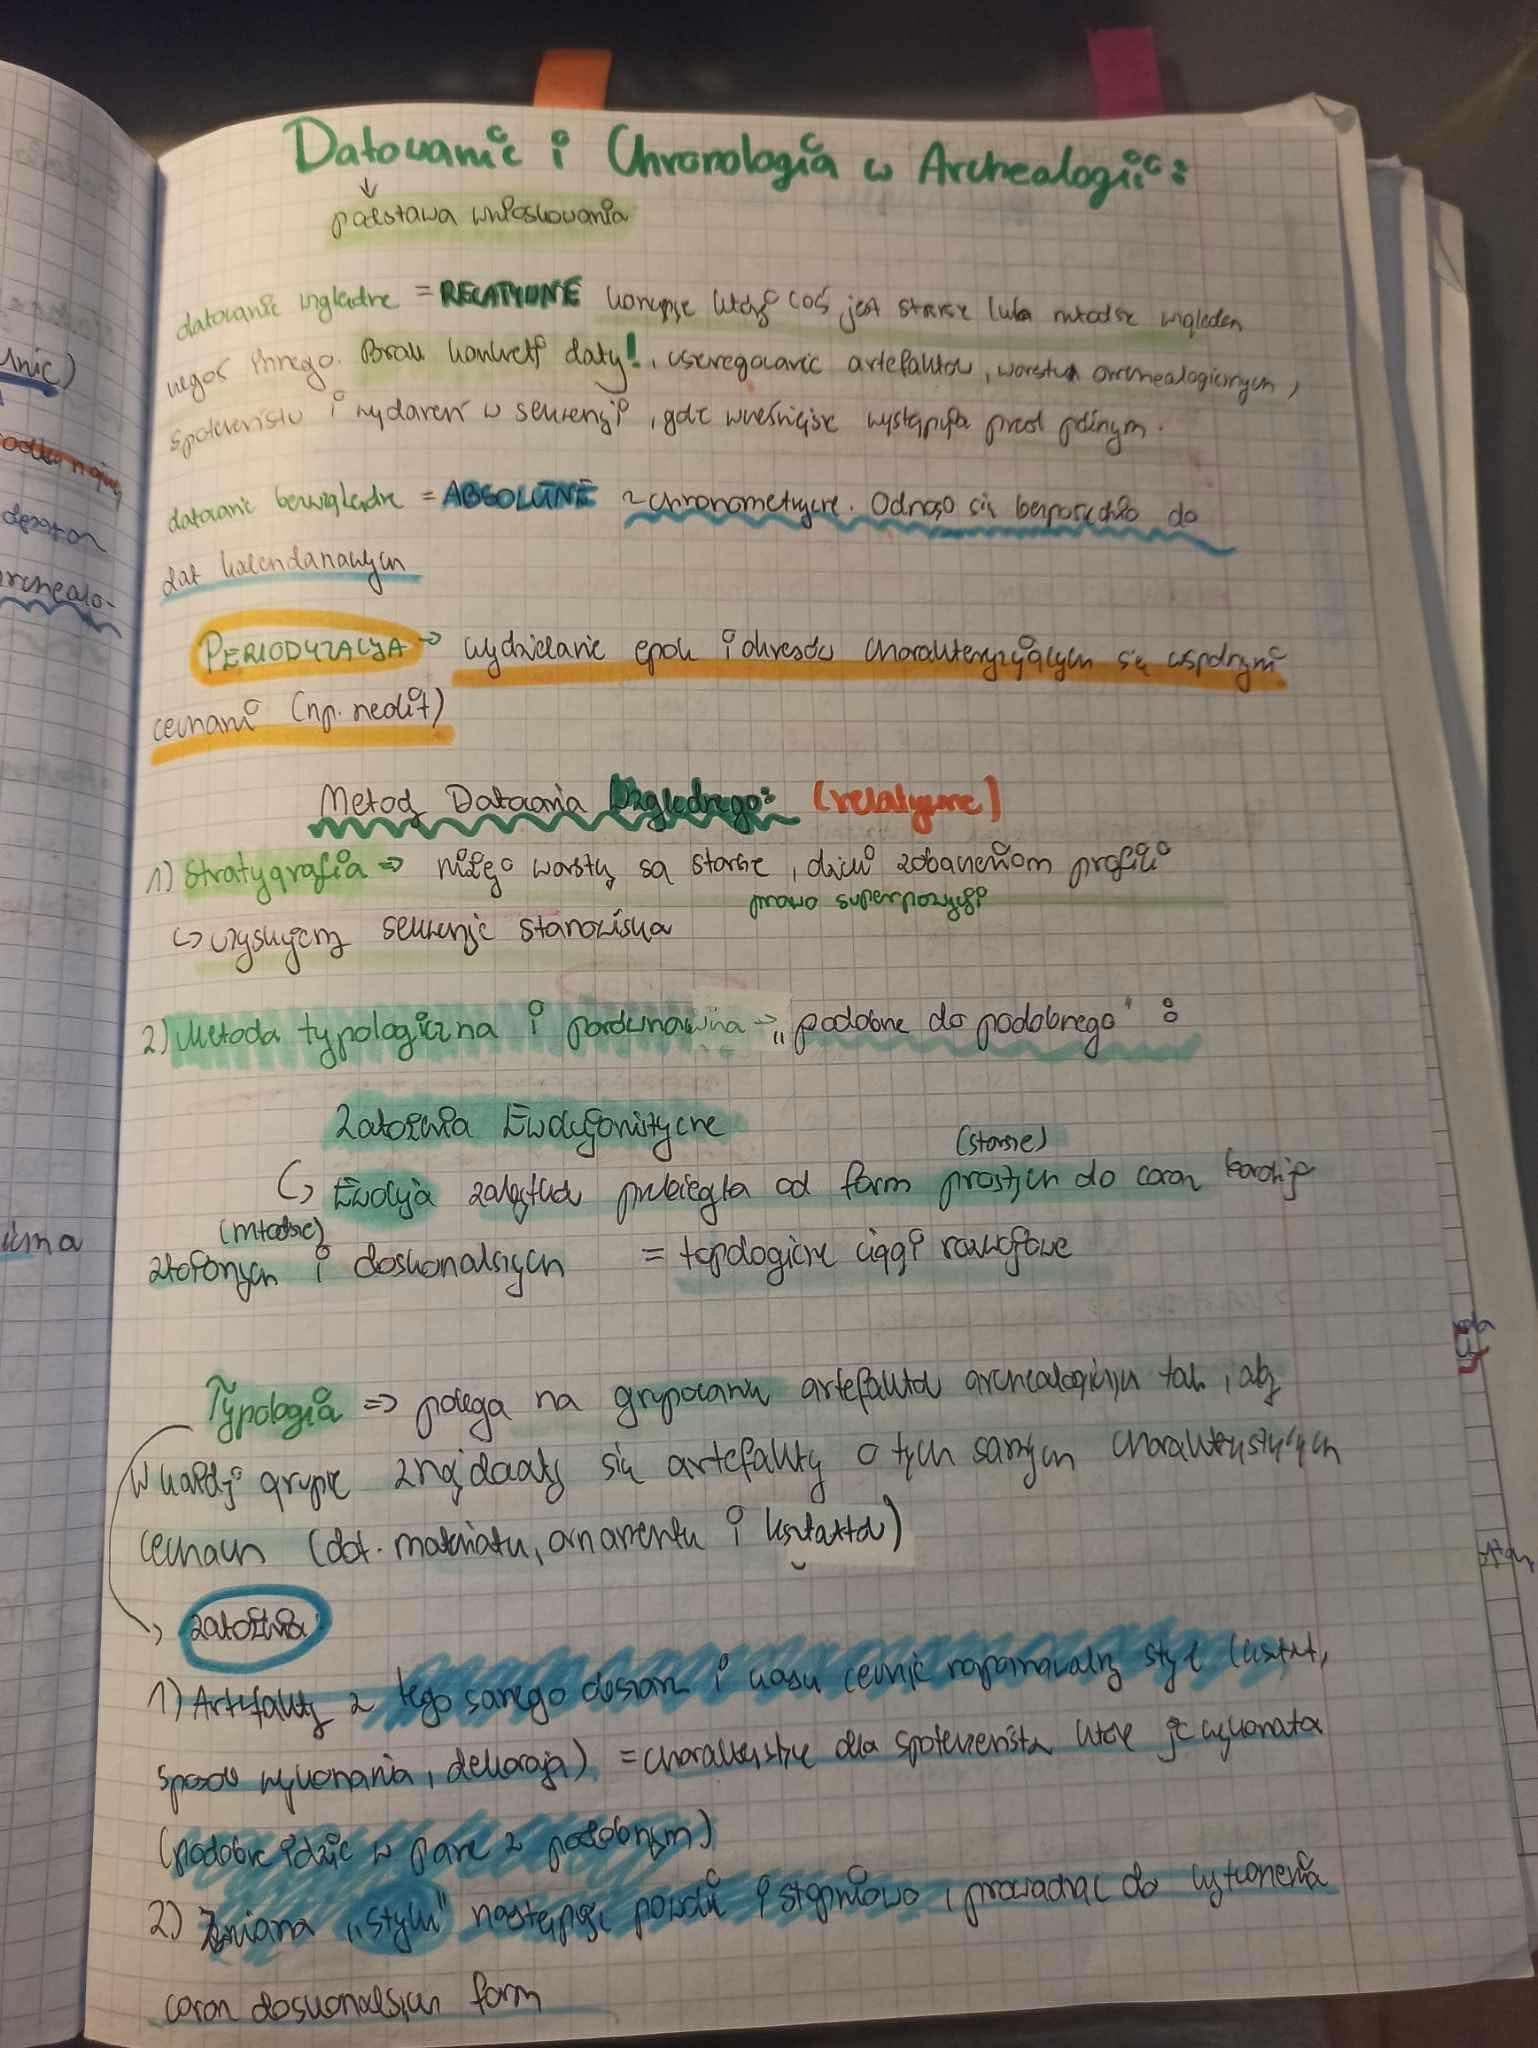 Datowanie i Chronologia w Archealogii:
podstawa wnioskowania
datowanie względne = RELATYWNE koncepcje który coś jest starsze lub młodsze względem
negoś innego. Brak konkretj daty!, uszeregowanie artefaktów, warstw archealogicznych,
społeczeństw i wydarzeń w sekwencji, gdzie wcześniejsze wystąpiła przed późnym.
datowanie bezwzględne = ABSOLUTNE ~chronometryczne. Odnoszą się bezpośrednio do
dat kalendarzowych
PERIODYZACJA → wydzielanie epok i okresów charakteryzujących się wspólnymi
cechami (np. neolit)
Metody Datowania Względnego: (relatywne)
1) Stratygrafia => niżej warstwy są starsze, dzięki zobaczeniom profili
prawo superpozycji
↳ uzyskujemy sekwencje stanowiska
2) Metoda typologiczna i porównawcza → „podobne do podobnego" :
Założenia Ewolucjonistyczne
(starsze)
↳ Ewolucja zabytków przebiegła od form prostych do coraz bardziej
(młodsze)
złożonych i doskonalszych = typologiczne ciągi rozwojowe
Typologia => polega na grupowaniu artefaktów archealogicznych tak, aby
w każdej grupie znajdowały się artefakty o tych samych charakterystycznych
cechach (dot. materiału, ornamentu i kształtów)
założenia:
1) Artefakty z tego samego obszaru i czasu cechuje rozpoznawalny styl (kształt,
sposób wykonania, dekoracja) = charakterystyczne dla społeczeństwa które je wykonała
(podobne idzie w parze z podobnym)
2) Zmiana „stylu" następuje powoli i stopniowo, prowadząc do wytworzenia
coraz doskonalszych form